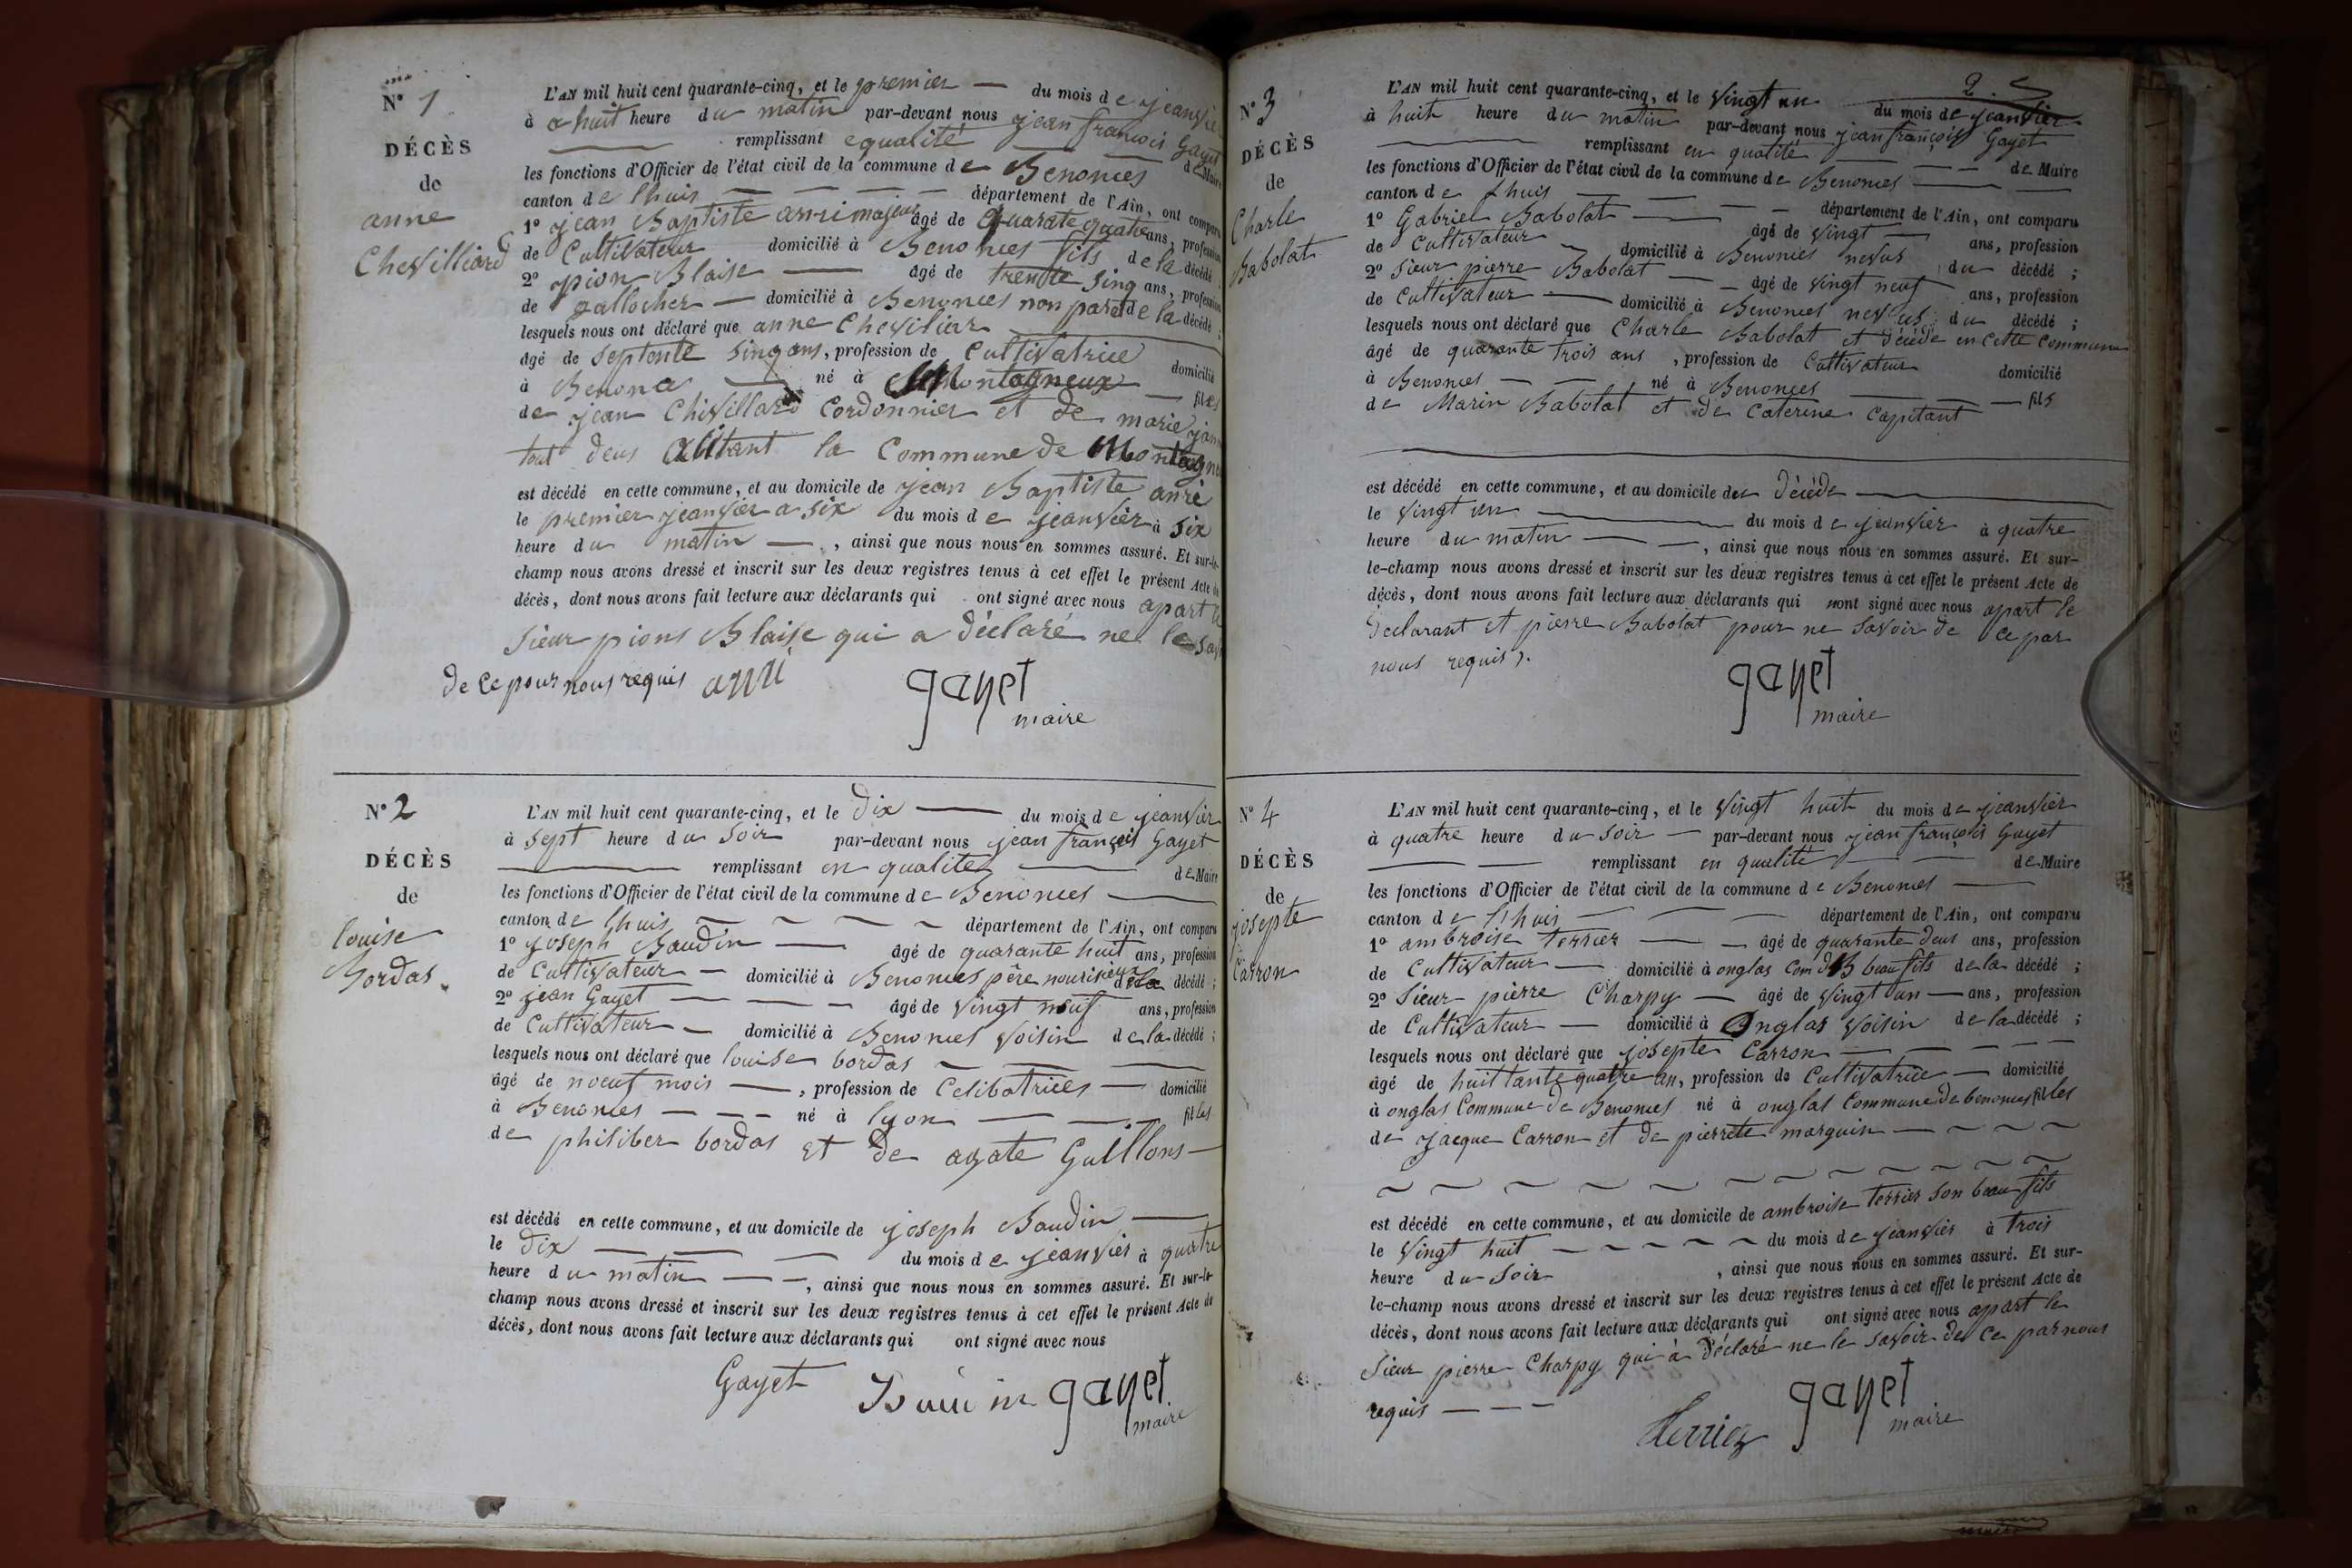 N° 1
DÉCÈS
de
anne
Chevilliard
L'AN mil huit cent quarante-cinq, et le premier — du mois de jeanvier
à a huit heure du matin par-devant nous jean francois Gayet
— remplissant equalité — de Maire
les fonctions d'Officier de l'état civil de la commune de Benonces
canton de lhuis — — — — département de l'Ain, ont comparu
1° jean Baptiste anri majeur âgé de quarate quatre ans, profession
de Cultivateur domicilié à Benonces fils de la décédé
2° pion Blaise — âgé de trente sinq ans, profession
de gallocher — domicilié à Benonces non parat de la décédé ;
lesquels nous ont déclaré que anne Cheviliar
âgé de septente sinq ans, profession de Cultivatrice domicilié
à Benona — né à Montagneux — filles
de jean Chivillard Cordonnier et de marie jan
tout deus abitant la Commune de Montagne
est décédé en cette commune, et au domicile de jean Baptiste anri
le premier jeanvier a six du mois de jeanvier à six
heure du matin —, ainsi que nous nous en sommes assuré. Et sur-le-
champ nous avons dressé et inscrit sur les deux registres tenus à cet effet le présent Acte de
décès, dont nous avons fait lecture aux déclarants qui ont signé avec nous apart le
Sieur pions Blaise qui a déclaré ne le sav
de ce pour nous requis anri gayet
maire
N° 2
DÉCÈS
de
louise
Bordas.
L'AN mil huit cent quarante-cinq, et le dix — du mois de jeanvier
à sept heure du soir par-devant nous jean françois Gayet
— remplissant en qualite — de Maire
les fonctions d'Officier de l'état civil de la commune de Benonces —
canton de lhuis ~ ~ ~ ~ département de l'Ain, ont comparu
1° joseph Baudin — âgé de quarante huit ans, profession
de Cultivateur — domicilié à Benonces père nouriseur de la décédé ;
2° jean Gayet — — — âgé de vingt neuf ans, profession
de Cultivateur — domicilié à Benonces voisin de la décédé ;
lesquels nous ont déclaré que louise bordas ~ — —
âgé de noeuf mois —, profession de Celibatrices — domicilié
à Benonces — — — né à lyon — — filles
de philiber bordas et de agate Guillons —
est décédé en cette commune, et au domicile de joseph Baudin —
le dix — — — du mois de jeanvier à quatre
heure du matin — —, ainsi que nous nous en sommes assuré. Et sur-le-
champ nous avons dressé et inscrit sur les deux registres tenus à cet effet le présent Acte de
décès, dont nous avons fait lecture aux déclarants qui ont signé avec nous
Gayet Baudin gayet
maire
2
N° 3
DÉCÈS
de
Charle
Babolat
L'AN mil huit cent quarante-cinq, et le vingt un du mois de jeanvier
à huit heure du matin par-devant nous jean françois Gayet
— remplissant en qualité — — de Maire
les fonctions d'Officier de l'état civil de la commune de Benonces — —
canton de lhuis — — — département de l'Ain, ont comparu
1° Gabriel Babolat — — âgé de vingt — ans, profession
de Cultivateur ~ domicilié à Benonces nevus du décédé ;
2° Sieur pierre Babolat — — âgé de vingt neuf ans, profession
de Cultivateur — domicilié à Benonces neveus du décédé ;
lesquels nous ont déclaré que Charle Babolat et décédé en cette Commune
âgé de quarante trois ans, profession de Cultivateur domicilié
à Benonces — — né à Benonces — — — fils
de Marin Babolat et de Caterine Capitant
est décédé en cette commune, et au domicile de décéde —
le vingt un — du mois de jeanvier à quatre
heure du matin — —, ainsi que nous nous en sommes assuré. Et sur-
le-champ nous avons dressé et inscrit sur les deux registres tenus à cet effet le présent Acte de
décès, dont nous avons fait lecture aux déclarants qui nont signé avec nous apart le
declarant et pierre Babolat pour ne savoir de ce par
nous requis). gayet
maire
N° 4
DÉCÈS
de
josepte
Carron
L'AN mil huit cent quarante-cinq, et le vingt huit du mois de jeanvier
à quatre heure du soir — par-devant nous jean françois Gayet
— — remplissant en qualité — — de Maire
les fonctions d'Officier de l'état civil de la commune de Benonces —
canton de lhuis — — — département de l'Ain, ont comparu
1° ambroise terrier — — âgé de quarante deus ans, profession
de Cultivateur — domicilié à onglas Com d B beau fils de la décédé ;
2° Sieur pierre Charpy — âgé de vingt un — ans, profession
de Cultivateur — domicilié à Onglas voisin de la décédé ;
lesquels nous ont déclaré que josepte Carron — — — — —
âgé de huittante quatre an, profession de Cultivatrice — domicilié
à onglas Commune de Benonces né à onglas Commune de benonces filles
de jacque Carron et de pierrete marguin — ~ ~ ~
~ ~ ~ ~ ~ ~ ~ ~ ~ ~
est décédé en cette commune, et au domicile de ambroise terrier son beau fils
le vingt huit — ~ ~ ~ ~ du mois de jeanvier à trois
heure du soir , ainsi que nous nous en sommes assuré. Et sur-
le-champ nous avons dressé et inscrit sur les deux registres tenus à cet effet le présent Acte de
décès, dont nous avons fait lecture aux déclarants qui ont signé avec nous apart le
Sieur pierre Charpy qui à déclaré ne le savoir de ce par nous
requis — — — Terrier gayet
maire